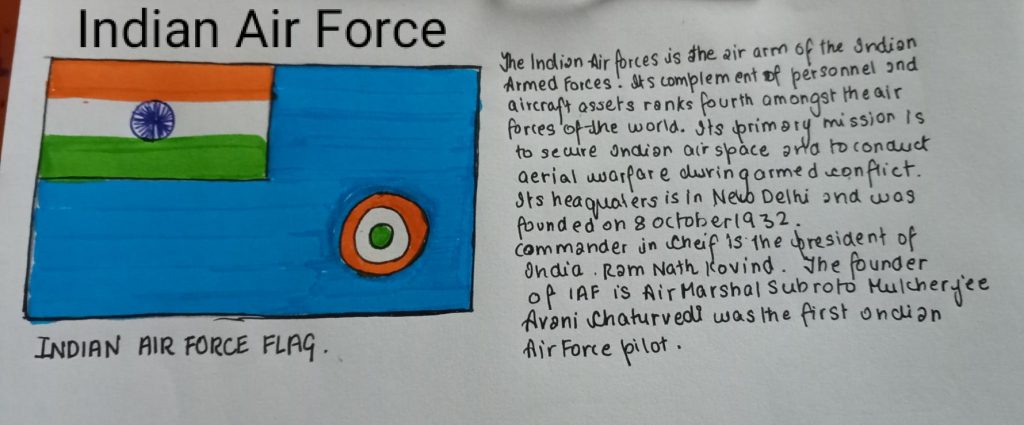 Indian Air Force
The Indian Air forces is the air arm of the Indian
Armed Forces. Its complement of personnel and
aircraft assets ranks fourth amongst the air
forces of the world. Its primary mission is
to secure Indian air space and to conduct
aerial warfare during armed conflict.
Its heaquaters is in New Delhi and was
founded on 8 october 1932.
commander in cheif is the president of
India. Ram Nath Kovind. The founder
of IAF is Air Marshal Subroto Mukherjee
Avani Chaturvedi was the first ondian
Air Force pilot.
INDIAN AIR FORCE FLAG.